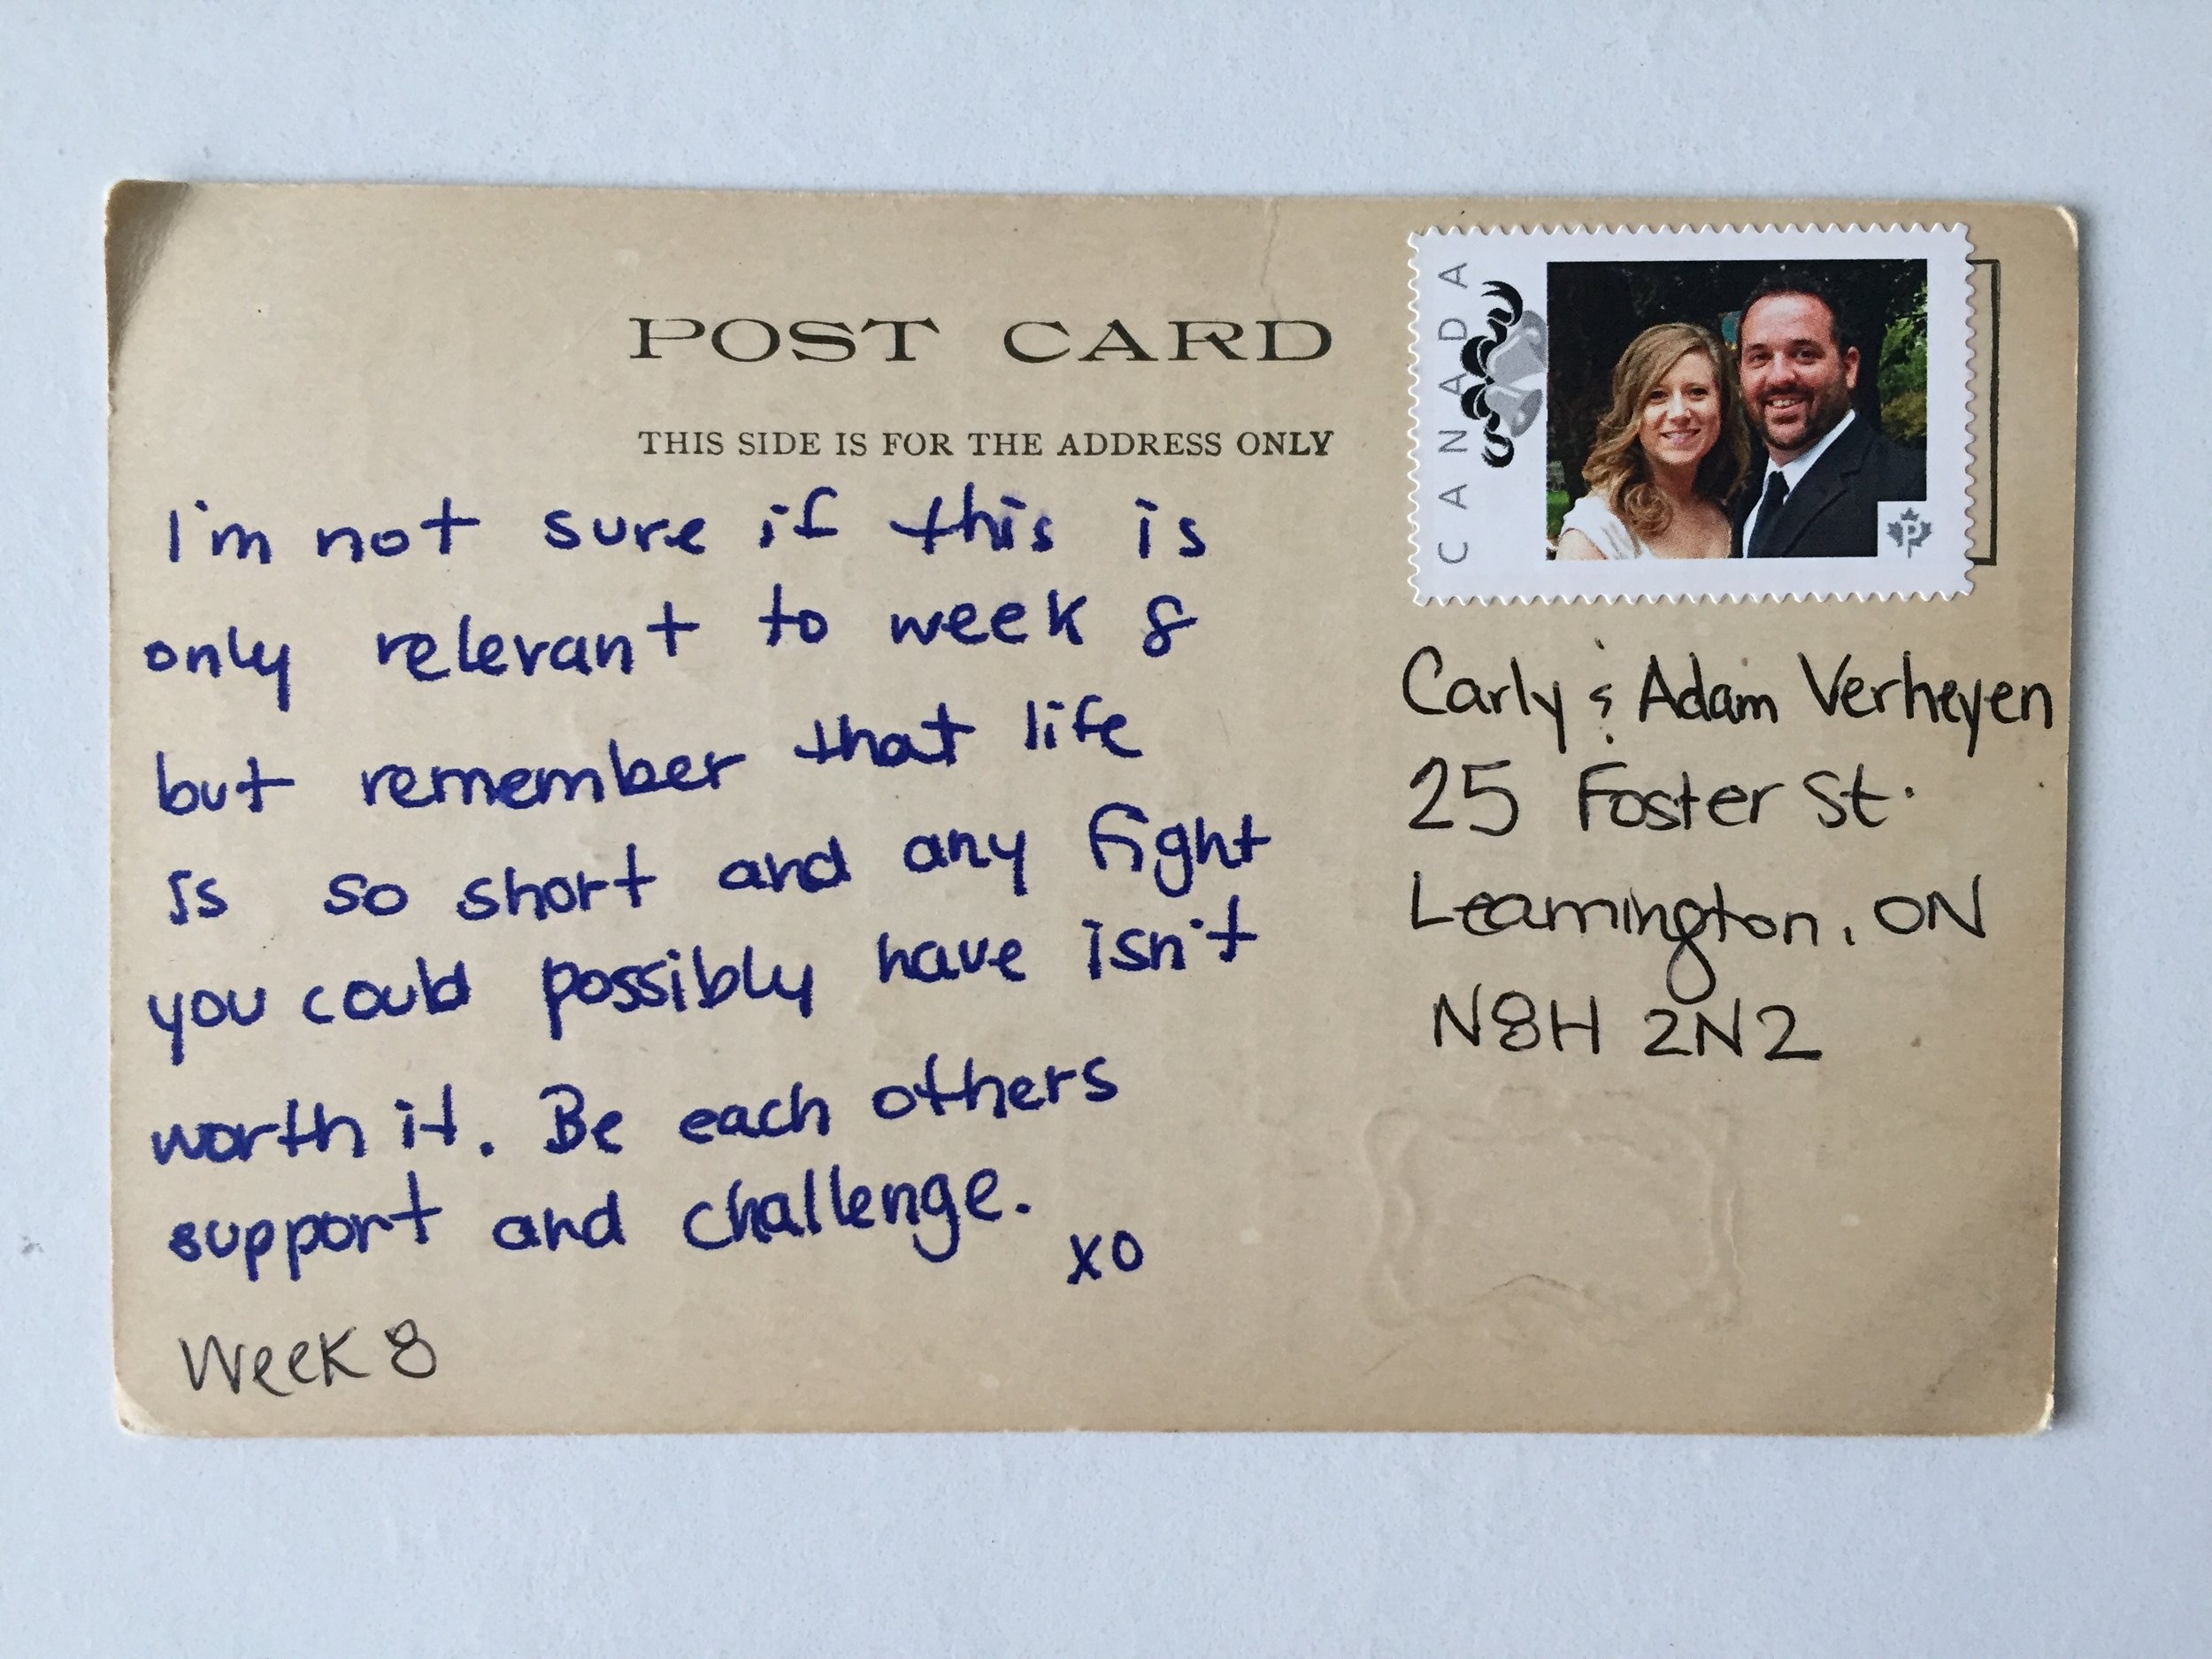 POST CARD
THIS SIDE IS FOR THE ADDRESS ONLY
CANADA
P
I'm not sure if this is
only relevant to week 8
but remember that life
is so short and any fight
you could possibly have isn't
worth it. Be each others
support and challenge.
xo
Week 8
Carly & Adam Verheyen
25 Foster St.
Leamington, ON
N8H 2N2